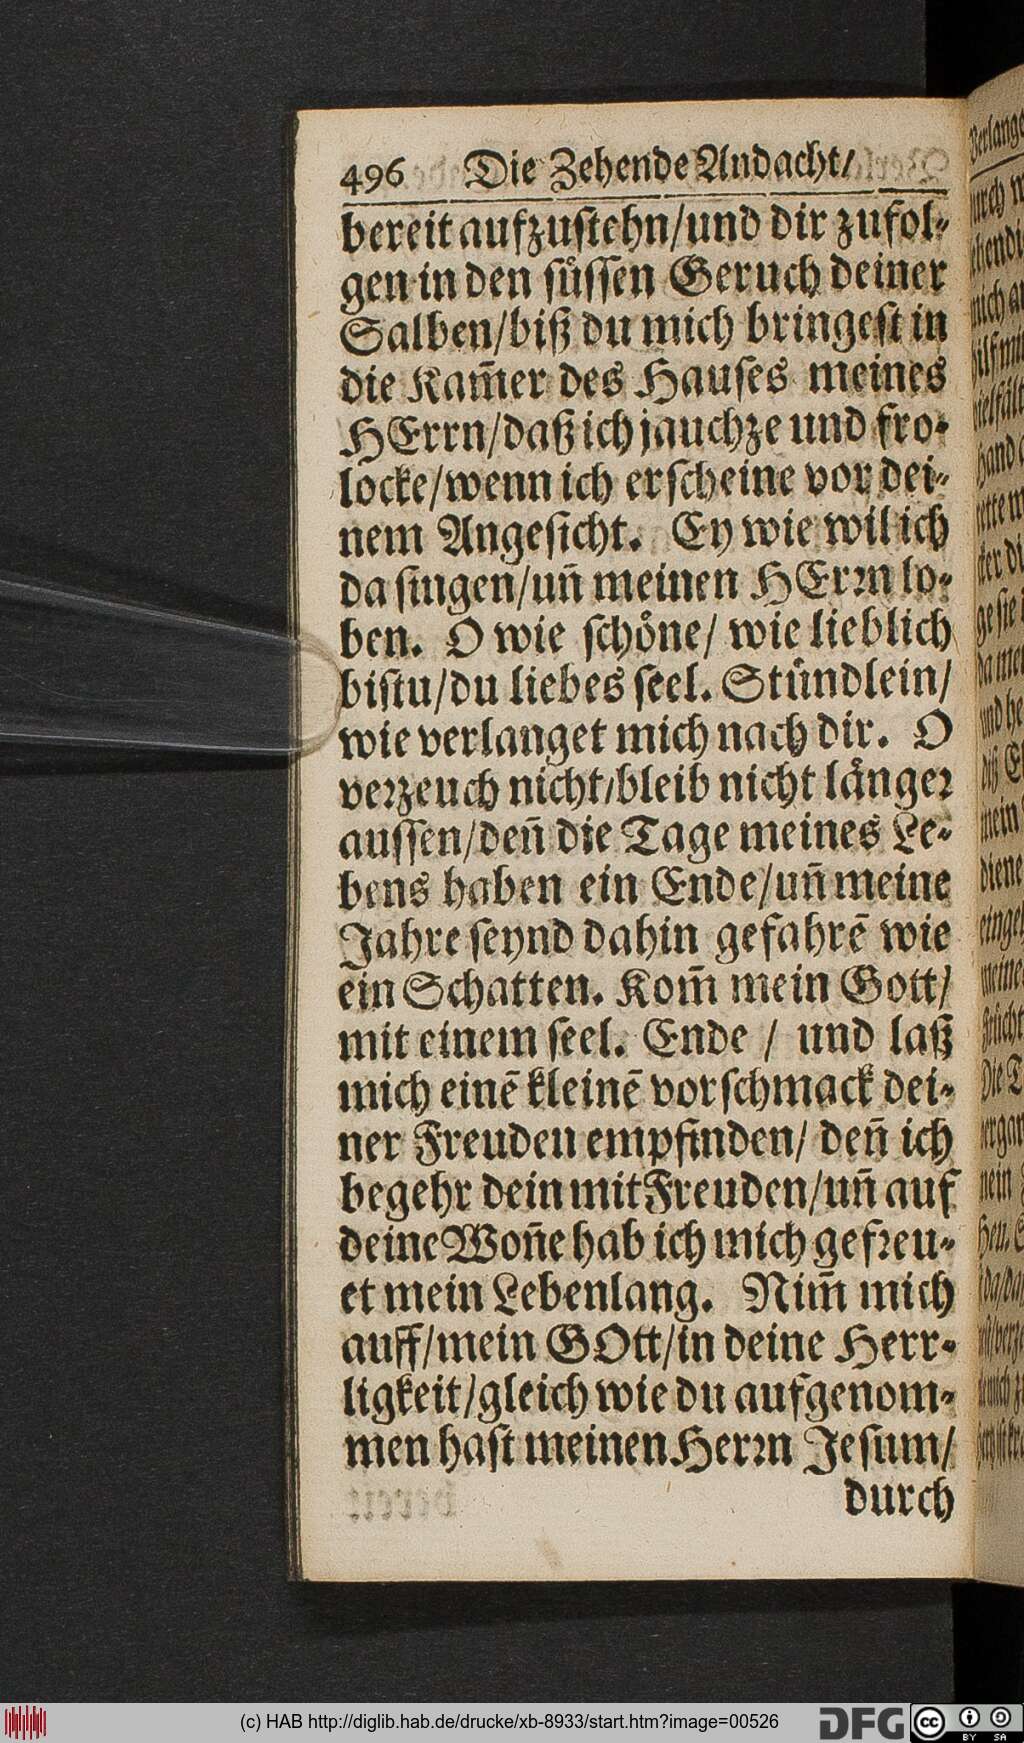 496 Die Zehende Andacht/
bereit aufzustehn/und dir zufol-
gen in den süssen Geruch deiner
Salben/biß du mich bringest in
die Kam̃er des Hauses meines
HErrn/daß ich jauchze und fro-
locke/wenn ich erscheine vor dei-
nem Angesicht. Ey wie wil ich
da singen/uñ meinen HErrn lo-
ben. O wie schöne/ wie lieblich
bistu/du liebes seel. Stündlein/
wie verlanget mich nach dir. O
verzeuch nicht/bleib nicht länger
aussen/deñ die Tage meines Le-
bens haben ein Ende/uñ meine
Jahre seynd dahin gefahrẽ wie
ein Schatten. Kom̃ mein Gott/
mit einem seel. Ende / und laß
mich einẽ kleinẽ vorschmack dei-
ner Freuden empfinden/ deñ ich
begehr dein mit Freuden/uñ auf
deine Woñe hab ich mich gefreu-
et mein Lebenlang. Nim̃ mich
auff/mein GOtt/in deine Herr-
ligkeit/gleich wie du aufgenom-
men hast meinen Herrn Jesum/
durch
(c) HAB http://diglib.hab.de/drucke/xb-8933/start.htm?image=00526
DFG
cc BY SA